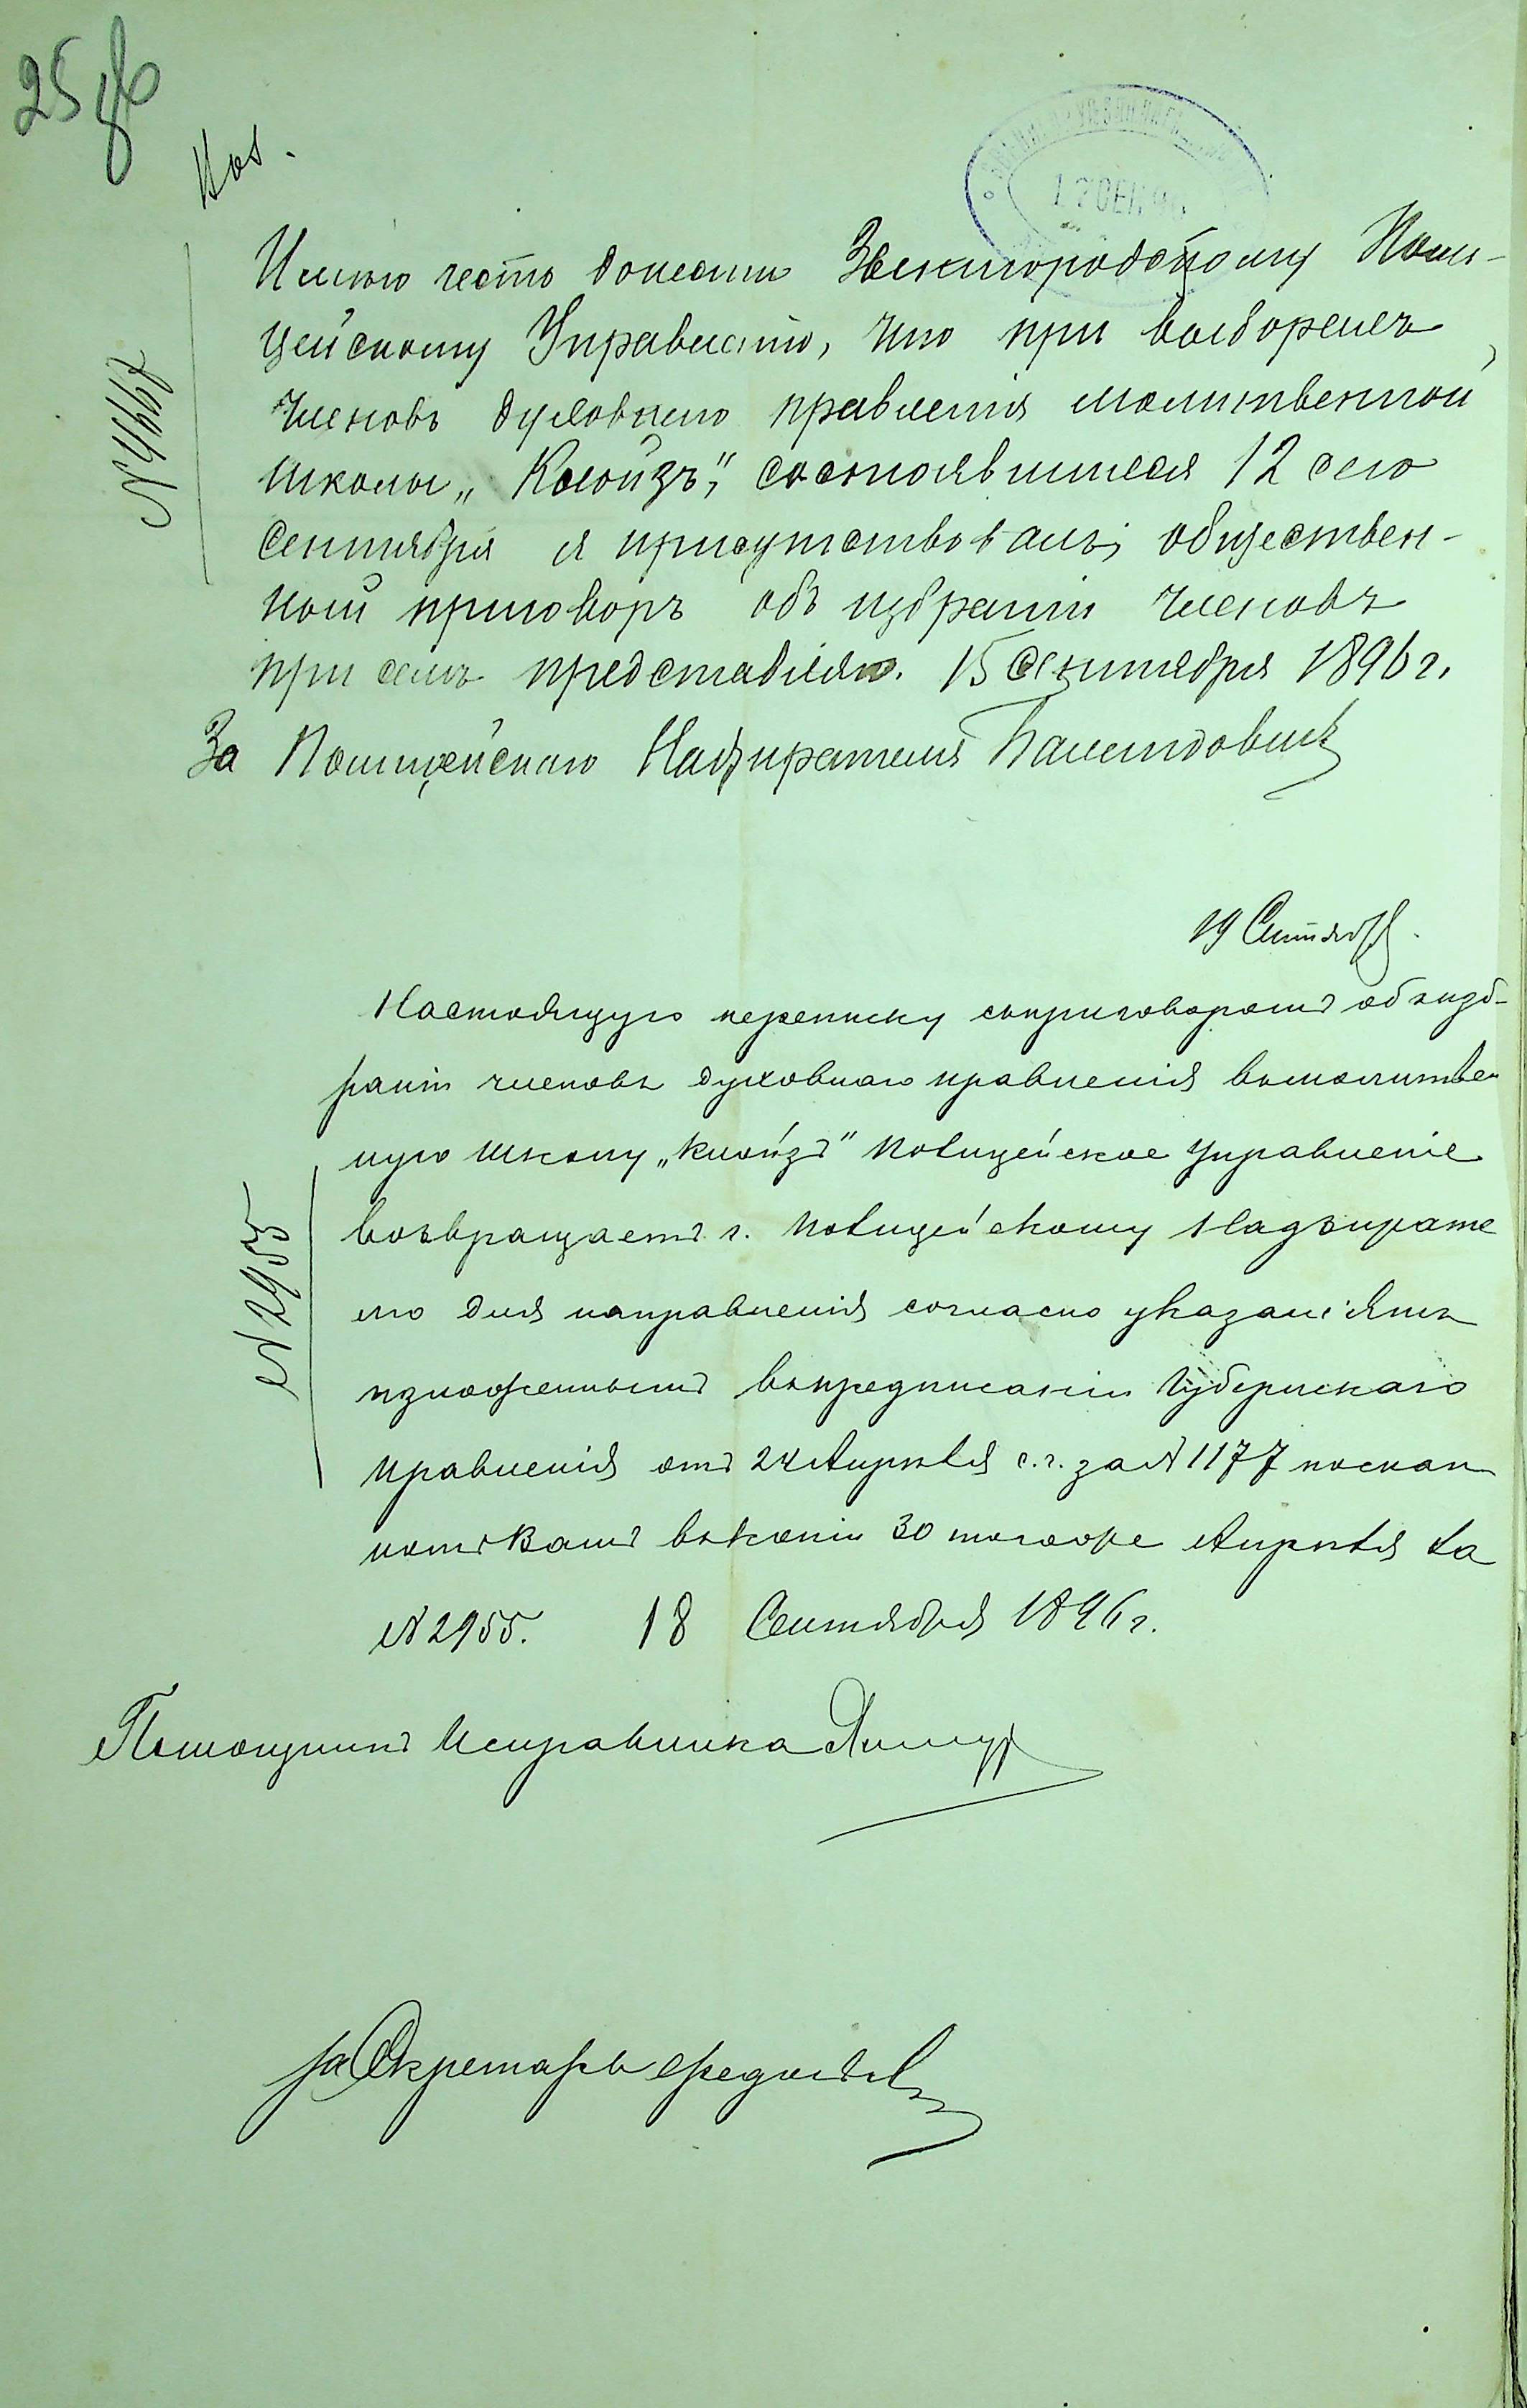 25
Имѣю честь донести Звенигородскому Поли-
цейскому Управленію, что при выборахъ
членовъ духовнаго правленія молитвенной
школы „Клойзъ", состоявшихся 12 сего
Сентября я присутствовалъ; обществен-
ный приговоръ объ избраніи членовъ
при семъ представляю. 15 Сентября 1896 г.
За Полицейскаго Надзирателя
№ 4667
19 Сентября.
Настоящую переписку съ приговоромъ объ изб-
раніи членовъ духовнаго правленія въ молитвен
ную школу „Клойзъ" Полицейское Управленіе
возвращаетъ г. Полицейскому Надзирате
лю для направленія согласно указаніямъ
изложеннымъ въ предписаніи Губернскаго
Правленія отъ 24 Апрѣля с.г. за № 1177
Вамъ въ копіи 30 того же Апрѣля за
№ 2955. 18 Сентября 1896 г.
№ 2955
Помощникъ Исправника
за Секретаря